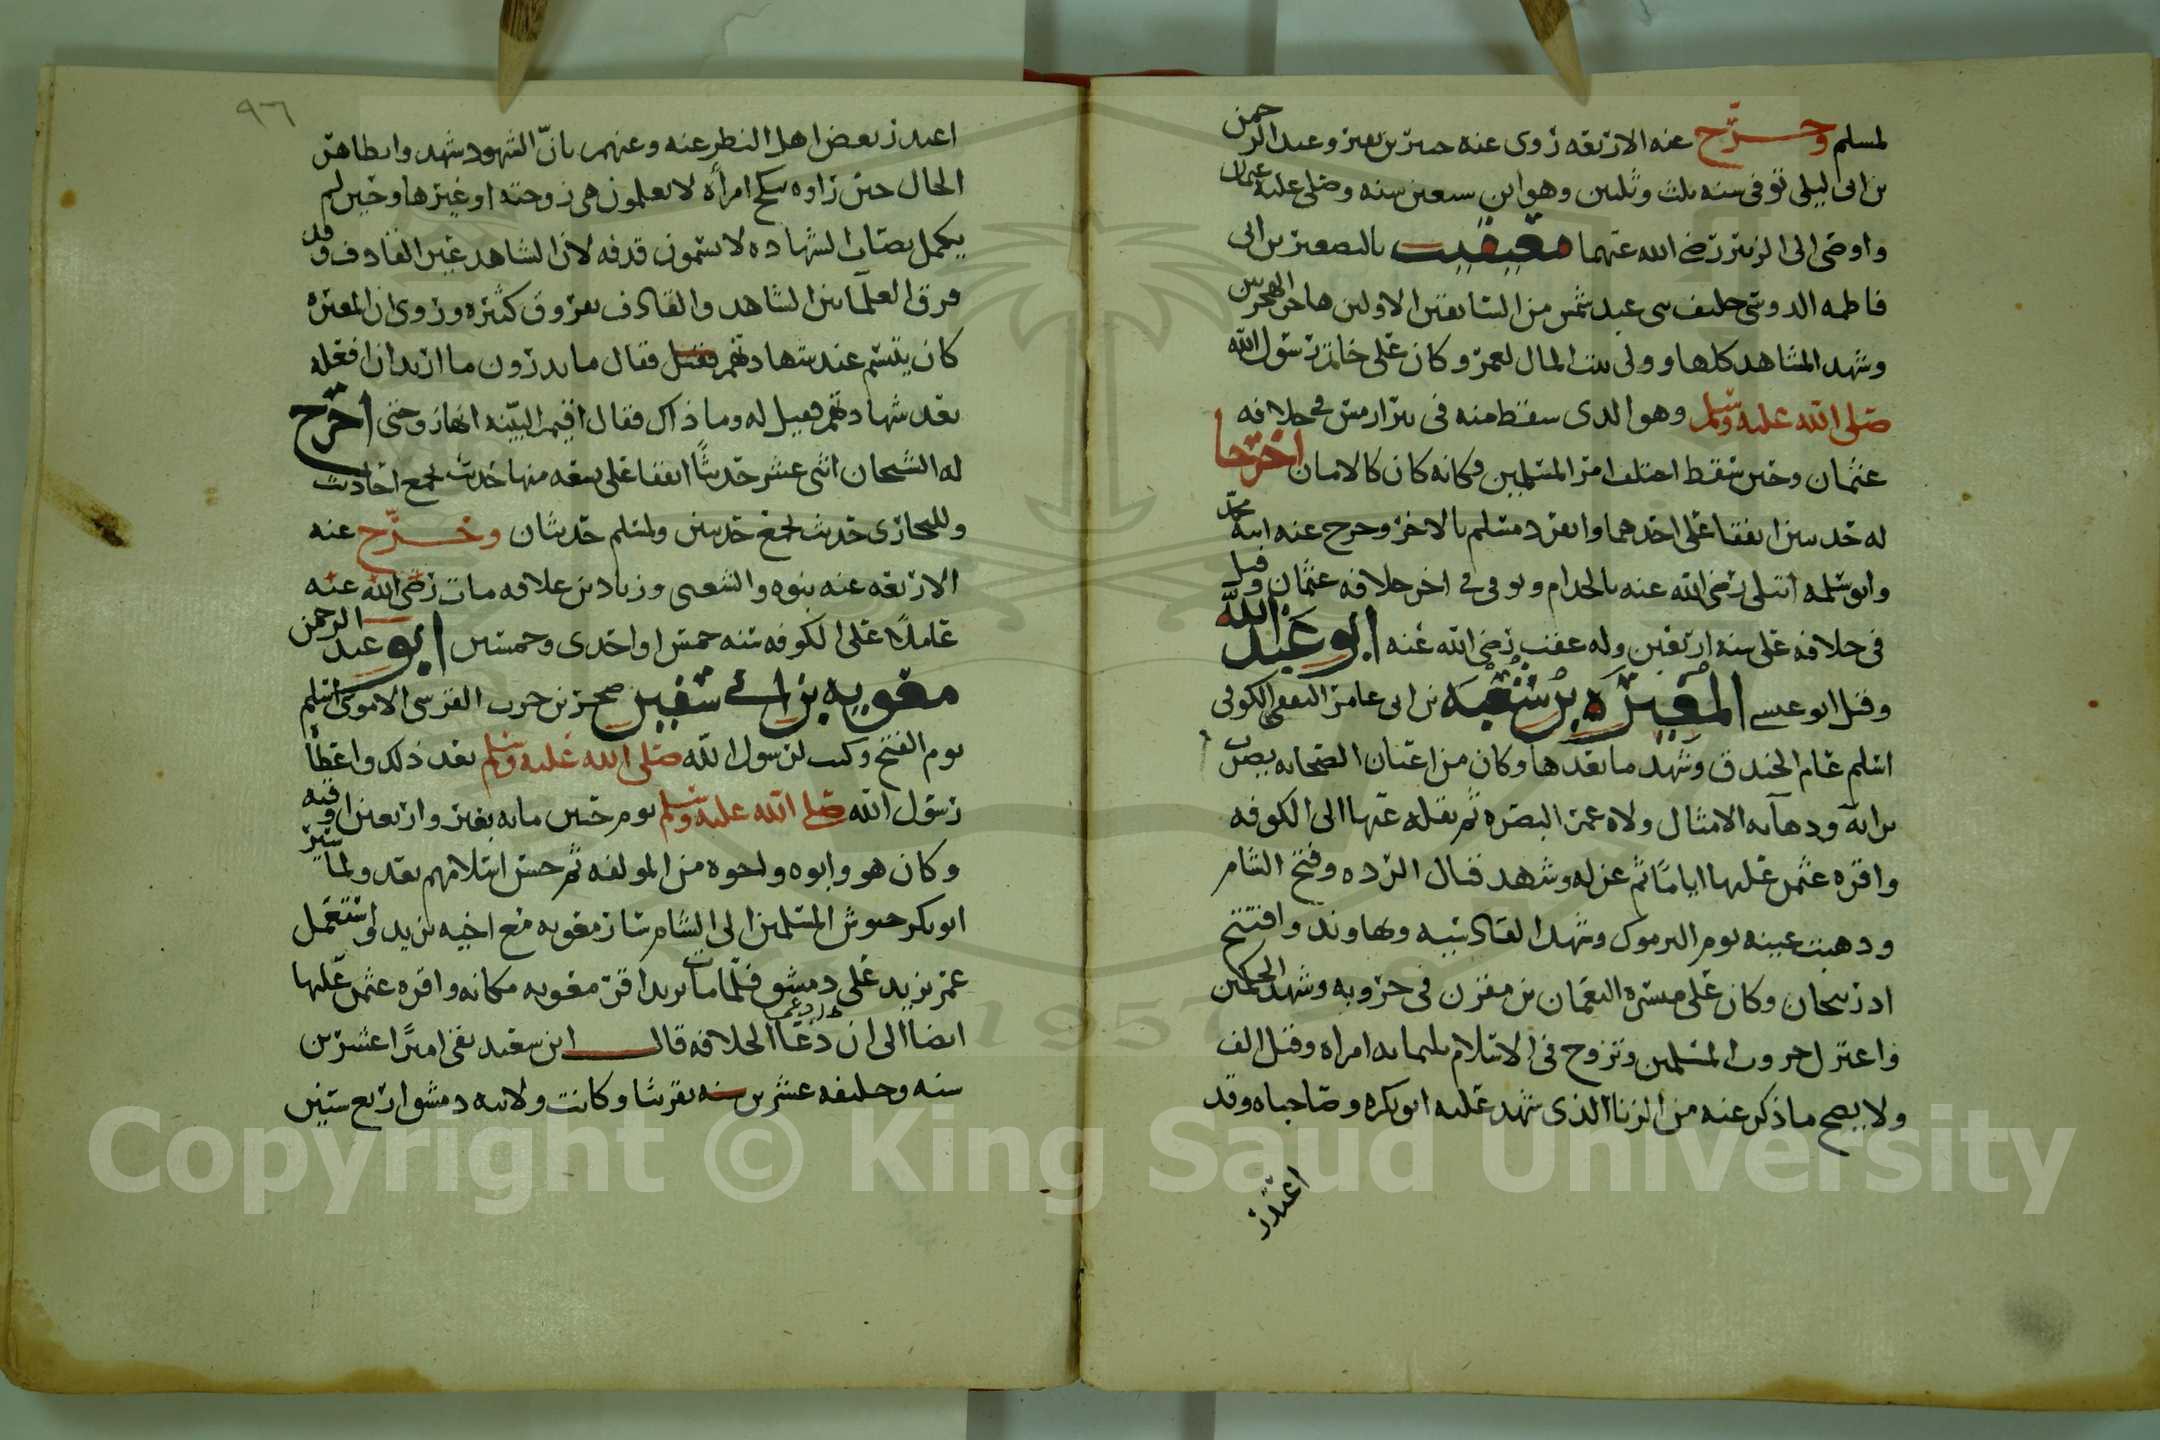 لمسلم وخرّج عنه الاربعه روى عنه جبير بن نفير وعبد الرحمن
بن ابى ليلى توفى سنه ثلث وثلثين وهو ابن سبعين سنه وصلى عليه عثمان
واوصى الى الزبير رضى الله عنهما معيقيب بالتصغير بن ابى
فاطمه الدوسى حليف بنى عبد شمس من السابقين الاولين هاجر الهجرتين
وشهد المشاهد كلها وولى بيت المال لعمر وكان على خاتم رسول الله
صلى الله عليه وسلم وهو الذى سقط منه فى بئر اريس فى خلافه
عثمان وحين سقط اختلف امر المسلمين وكانه كان كالامان اخرجا
له حديثين اتفقا على احدهما وانفرد مسلم بالاخر وخرج عنه ابنه محمد
وابو سلمه ابتلى رضى الله عنه بالجذام وتوفى فى اخر خلافه عثمان وقيل
فى خلافه على سنه اربعين وله عقب رضى الله عنه ابو عبد الله
وقيل ابو عيسى المغيره بن شعبه بن ابى عامر الثقفى الكوفى
اسلم عام الخندق وشهد ما بعدها وكان من اعيان الصحابه يضرب
برايه ودهآيه الامثال ولاه عمر البصره ثم نقله عنها الى الكوفه
واقره عثمن عليها اياما ثم عزله وشهد قتال الرده وفتح الشام
وذهبت عينه يوم اليرموك وشهد القادسيه ونهاوند وافتتح
اذربيجان وكان على ميسره النعمان بن مقرن فى حروبه وشهد الحكمين
واعتزل حروب المسلمين وتزوج فى الاسلام ثلثمايه امراه وقيل الف
ولا يصح ما ذكر عنه من الزنا الذى شهد عليه ابو بكره وصاحباه وقد
اعتذر
٩٦
اعتذر بعض اهل النظر عنه وعنهم بانّ الشهود شهدوا بظاهر
الحال حين راوه ينكح امراة لا يعلمون هى زوجته او غيرها وحين لم
يكمل نصاب الشهاده لا يسمون قذفه لان الشاهد غير القاذف وقد
فرق العلمآ بين الشاهد والقاذف بفروق كثيره وروى ان المغيره
كان يتبسم عند شهادتهم فقيل فقال ما يدرون ما اريد ان افعله
بعد شهادتهم فقيل له وما ذاك فقال اقيم البيّنه انها زوجتى اخرج
له الشيخان اثنى عشر حديثًا اتفقا على تسعه منها حديث لجمع احاديث
وللبخارى حديث لجمع حديثين ولمسلم حديثان وخرّج عنه
الاربعه عنه بنوه والشعبى وزياد بن علاقه مات رضى الله عنه
عاملا على الكوفه سنه خمس او احدى وخمسين ابو عبد الرحمن
معويه بن ابى سفين صخر بن حرب القرشى الاموى اسلم
يوم الفتح وكتب لرسول الله صلى الله عليه وسلم بعد ذلك واعطاه
رسول الله صلى الله عليه وسلم يوم حنين مايه بعير واربعين اوقيه
وكان هو وابوه واخوه من المولفه ثم حسن اسلامهم بعد ولما سير
ابو بكر جيوش المسلمين الى الشام سار معويه مع اخيه يزيد واستعمل
عمر يزيد على دمشق فلما مات يزيد اقر معويه مكانه واقره عثمن عليها
ايضا الى ان دعا الخلافه قال ابن سعيد بقى اميرًا عشرين
سنه وخليفه عشرين سنه تقريبا وكانت ولايته دمشق اربع سنين
Copyright © King Saud University
1957